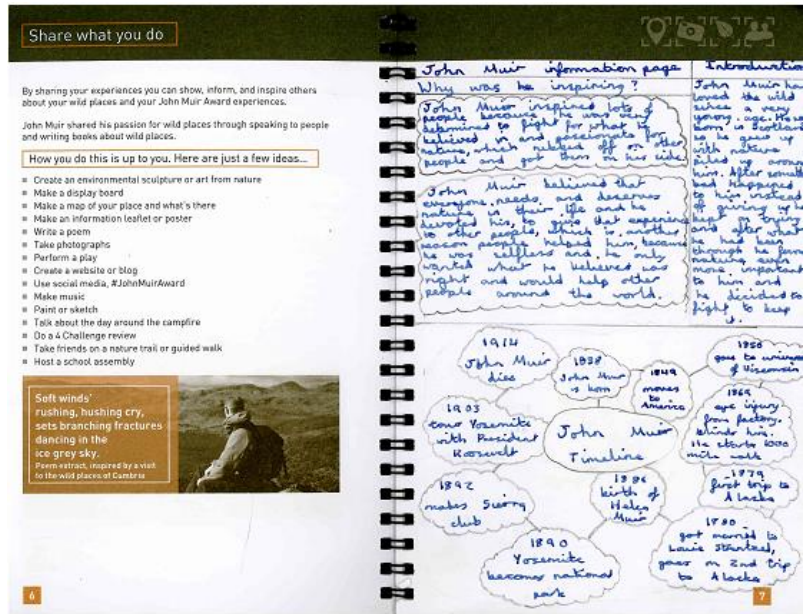 Share what you do
By sharing your experiences you can show, inform, and inspire others
about your wild places and your John Muir Award experiences.
John Muir shared his passion for wild places through speaking to people
and writing books about wild places.
How you do this is up to you. Here are just a few ideas...
Create an environmental sculpture or art from nature
Make a display board
Make a map of your place and what's there
Make an information leaflet or poster
Write a poem
Take photographs
Perform a play
Create a website or blog
Use social media, #JohnMuirAward
Make music
Paint or sketch
Talk about the day around the campfire
Do a 4 Challenge review
Take friends on a nature trail or guided walk
Host a school assembly
Soft winds'
rushing, hushing cry,
sets branching fractures
dancing in the
ice grey sky.
Poem extract, inspired by a visit
to the wild places of Cumbria
6
John Muir information page
Why was he inspiring?
John Muir inspired lots of
people because he was very
determined to fight for what he
believed in and passionate for
nature, which rubbed off on other
people and got them on his side.
John Muir believed that
everyone needs and deserves
nature in their life and he
devoted his, to give that experience
to other people, which is another
reason people helped him, because
he was selfless and he only
wanted what he believed was
right and would help other
people around the world.
Introduction
John Muir had
loved the wild
since a very
young age. He was
born in Scotland
so he grew up
with nature
piled up around
him. After something
bad happened
to him instead
of giving in he
kept on trying
and after what
he had been
through he found
nature even
more important
to him and
he decided to
fight to keep
it.
John Muir
Timeline
1838
John Muir
is born
1849
moves
to
America
1850
goes to
of Wisconsin
1869
eye injury
from factory
blinds him.
He starts 1000
mile walk
1879
first trip to
Alacka
1880
got married to
Louie
goes on 2nd trip
to Alacka
1886
birth of
Helen
Muir
1890
Yosemite
becomes national
park
1892
makes
club
1903
tour Yosemite
with President
Roosevelt
1914
John Muir
dies
7